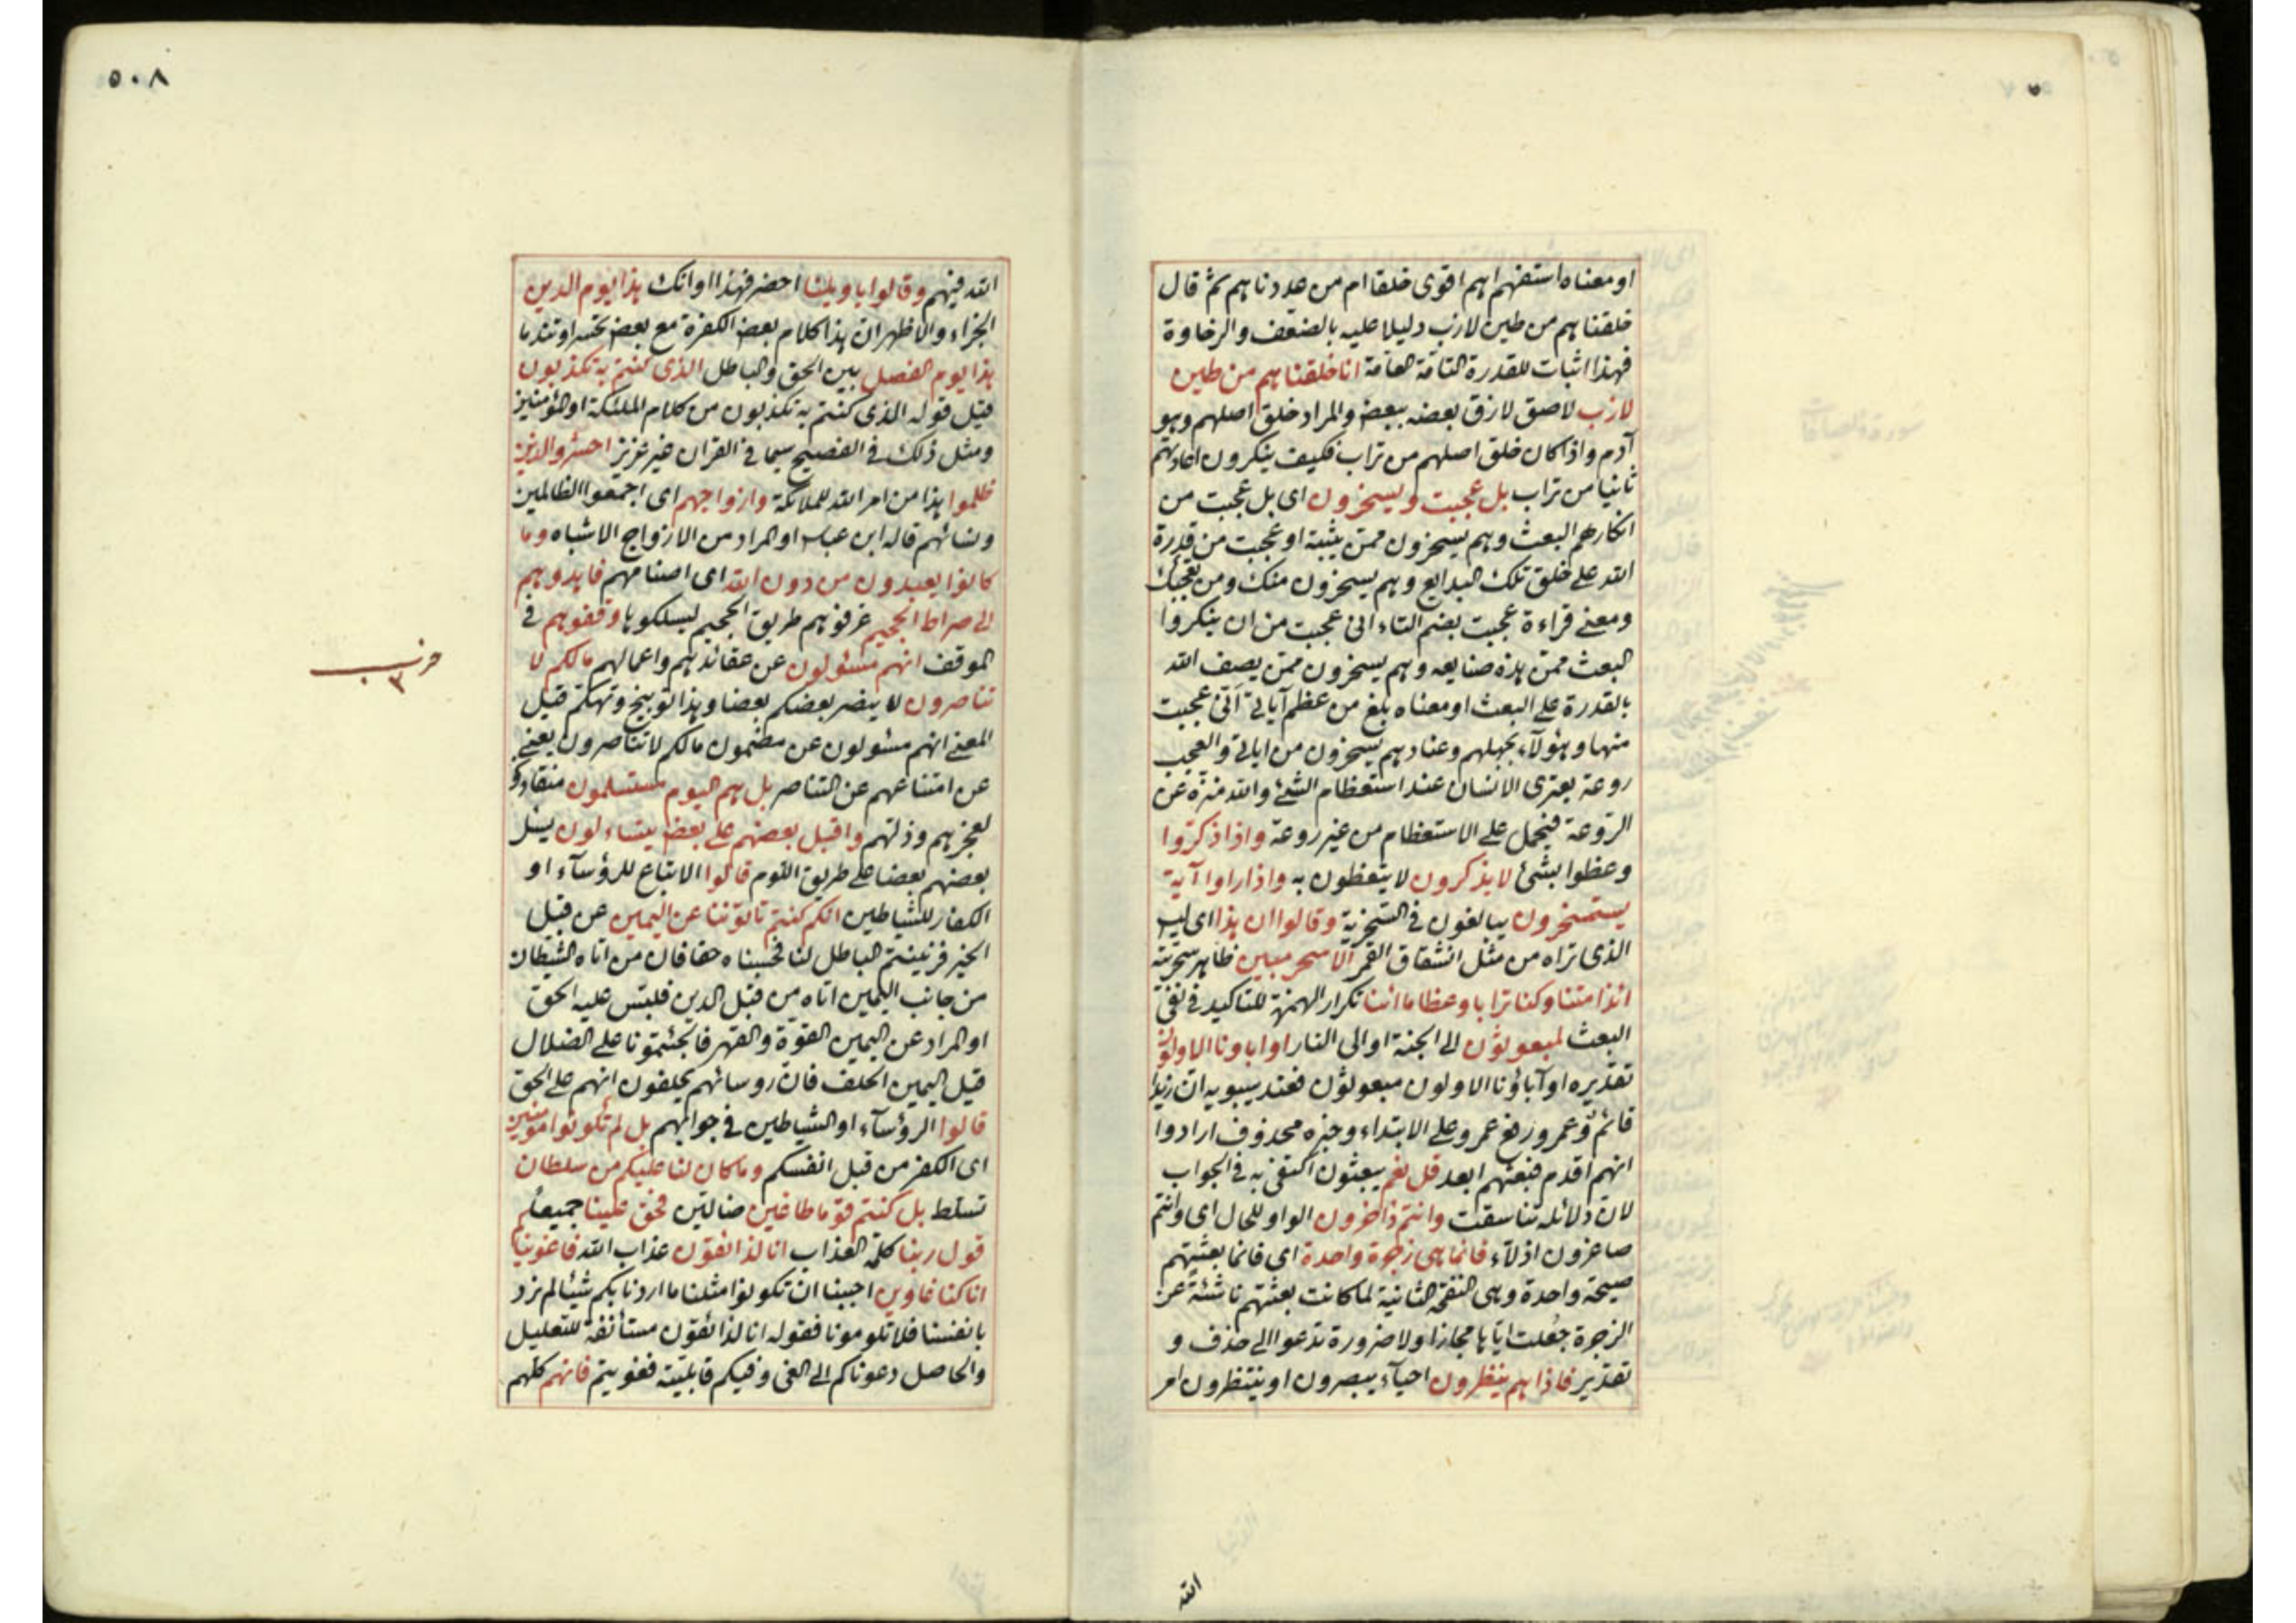 او معناه استفهم اهم اقوى خلقا ام من عددناهم ثم قال
خلقناهم من طين لازب دليلا عليه بالضعف والرخاوة
فهذا اثبات للقدرة التامة العامة انا خلقناهم من طين
لازب لاصق لازق بعضه ببعض والمراد خلق اصلهم وهو
آدم واذا كان خلق اصلهم من تراب فكيف ينكرون اعادتهم
ثانيا من تراب بل عجبت ويسخرون اى بل عجبت من
انكارهم البعث وهم يسخرون ممن يثبته او عجبت من قدرة
الله على خلق تلك البدايع وهم يسخرون منك ومن تعجبك
ومعنى قراءة عجبت بضم التاء انى عجبت من ان ينكروا
البعث ممن هذه صنايعه وهم يسخرون ممن يصف الله
بالقدرة على البعث او معناه بلغ من عظم آياتى انى عجبت
منها وهؤلآء بجهلهم وعنادهم يسخرون من اياتى والعجب
روعة يعترى الانسان عند استعظام الشئ والله منزه عن
الروعة فيحمل على الاستعظام من غير روعة واذا ذكروا
وعظوا بشئ لا يذكرون لا يتعظون به واذا راوا آية
يستسخرون يبالغون فى السخرية وقالوا ان هذا اى ليس
الذى تراه من مثل انشقاق القمر الا سحر مبين ظاهر سحريته
ائذا متنا وكنا ترابا وعظاما ائنا تكرار الهمزة للتاكيد فى نفى
البعث لمبعوثون الى الجنة او الى النار او اباونا الاولون
تقديره او آباؤنا الاولون مبعوثون فعند سيبويه ان زيدا
قائم وعمرو رفع عمرو على الابتداء وخبره محذوف ارادوا
انهم اقدم فبعثهم ابعد قل نعم يبعثون اكتفى به فى الجواب
لان دلائله تناسقت وانتم داخرون الواو للحال اى وانتم
صاغرون اذلآء فانما هى زجرة واحدة اى فانما بعثتهم
صيحة واحدة وهى النفخة الثانية لما كانت بعثتهم ناشئة عن
الزجرة جعلت اياها مجازا ولا ضرورة تدعوا الى حذف و
تقدير فاذا هم ينظرون احيآء يبصرون او ينتظرون امر
الله
٥٠٨
الله فيهم وقالوا يا ويلنا احضر فهذا اوانك هذا يوم الدين
الجزاء والاظهر ان هذا كلام بعض الكفرة مع بعض تحسرا وتندما
هذا يوم الفصل بين الحق والباطل الذى كنتم به تكذبون
قيل قوله الذى كنتم به تكذبون من كلام الملئكة او المؤمنين
ومثل ذلك فى الفصيح سيما فى القران غير عزيز احشروا الذين
ظلموا هذا من امر الله للملائكة وازواجهم اى اجمعوا الظالمين
ونسائهم قاله ابن عباس او المراد من الازواج الاشباه وما
كانوا يعبدون من دون الله اى اصنامهم فاهدوهم
الى صراط الجحيم عرفوهم طريق الجحيم ليسلكوها وقفوهم فى
الموقف انهم مسئولون عن عقائدهم واعمالهم ما لكم لا
تناصرون لا ينصر بعضكم بعضا وهذا توبيخ وتهكم قيل
المعنى انهم مسئولون عن مضمون ما لكم لا تناصرون يعنى
عن امتناعهم عن التناصر بل هم اليوم مستسلمون منقادو
لعجزهم وذلتهم واقبل بعضهم على بعض يتساءلون يسئل
بعضهم بعضا على طريق اللوم قالوا الاتباع للرؤسآء او
الكفار للشياطين انكم كنتم تاتوننا عن اليمين عن قبل
الخير فزينتم الباطل لنا فحسبناه حقا فان من اتاه الشيطان
من جانب اليمين اتاه من قبل الدين فلبس عليه الحق
او المراد عن اليمين القوة والقهر فالجئتمونا على الضلال
قيل اليمين الحلف فان روسائهم يحلفون انهم على الحق
قالوا الرؤسآء او الشياطين فى جوابهم بل لم تكونوا مؤمنين
اى الكفر من قبل انفسكم وما كان لنا عليكم من سلطان
تسلط بل كنتم قوما طاغين ضالين فحق علينا جميعا
قول ربنا كلمة العذاب انا لذائقون عذاب الله فاغويناكم
انا كنا غاوين احببنا ان تكونوا مثلنا ما اردنا بكم شيئا لم نرد
بانفسنا فلا تلومونا فقوله انا لذائقون مستأنفة للتعليل
والحاصل دعوناكم الى الغى وفيكم قابلية فغويتم فانهم كلهم
حزب
٣